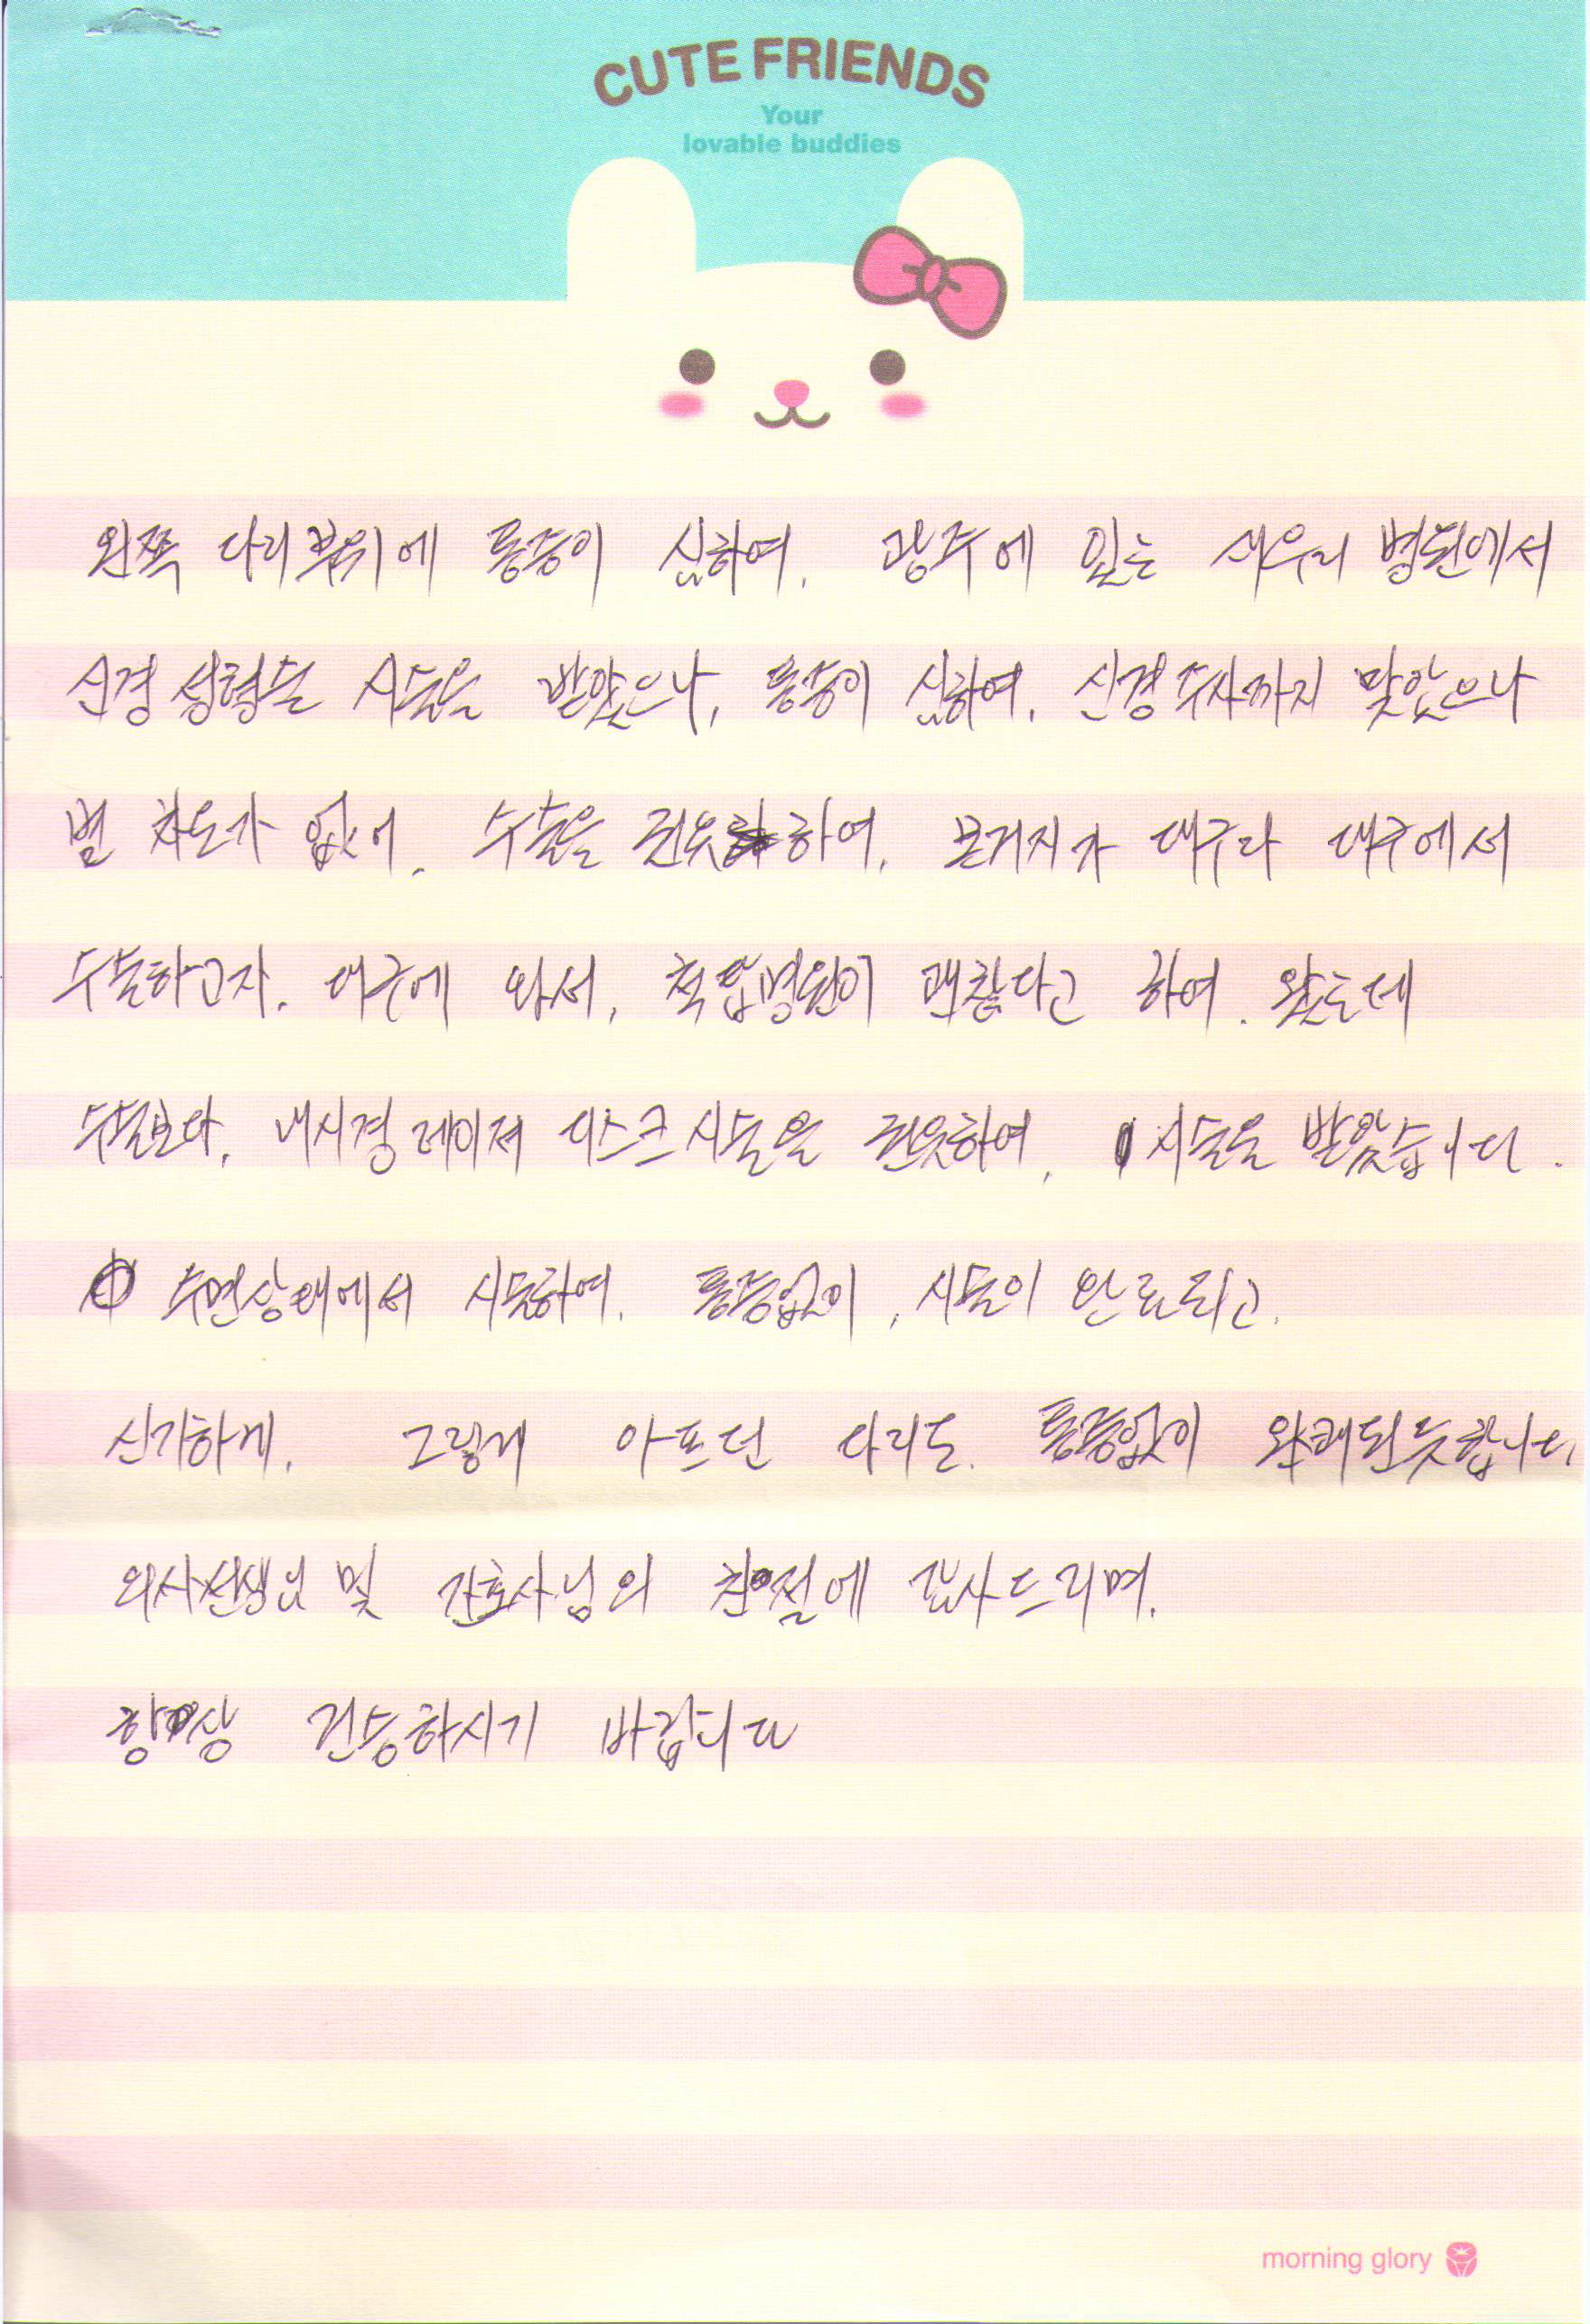 CUTE FRIENDS
Your
lovable buddies
왼쪽 다리 부위에 통증이 심하여. 광주에 있는 새우리 병원에서
신경 성형술 시술을 받았으나, 통증이 심하여. 신경주사까지 맞았으나
별 차도가 없어. 수술을 권유하여. 본거지가 대구라 대구에서
수술하고자. 대구에 와서, 척탑병원이 괜찮다고 하여. 왔는데
수술보다. 내시경 레이져 디스크 시술을 권유하여, 시술을 받았습니다.
수면상태에서 시술하여. 통증없이, 시술이 완료되고.
신기하게. 그렇게 아프던 다리도. 통증없이 완쾌된듯합니다
의사선생님 및 간호사님의 친절에 감사드리며.
항상 건승하시기 바랍니다
morning glory